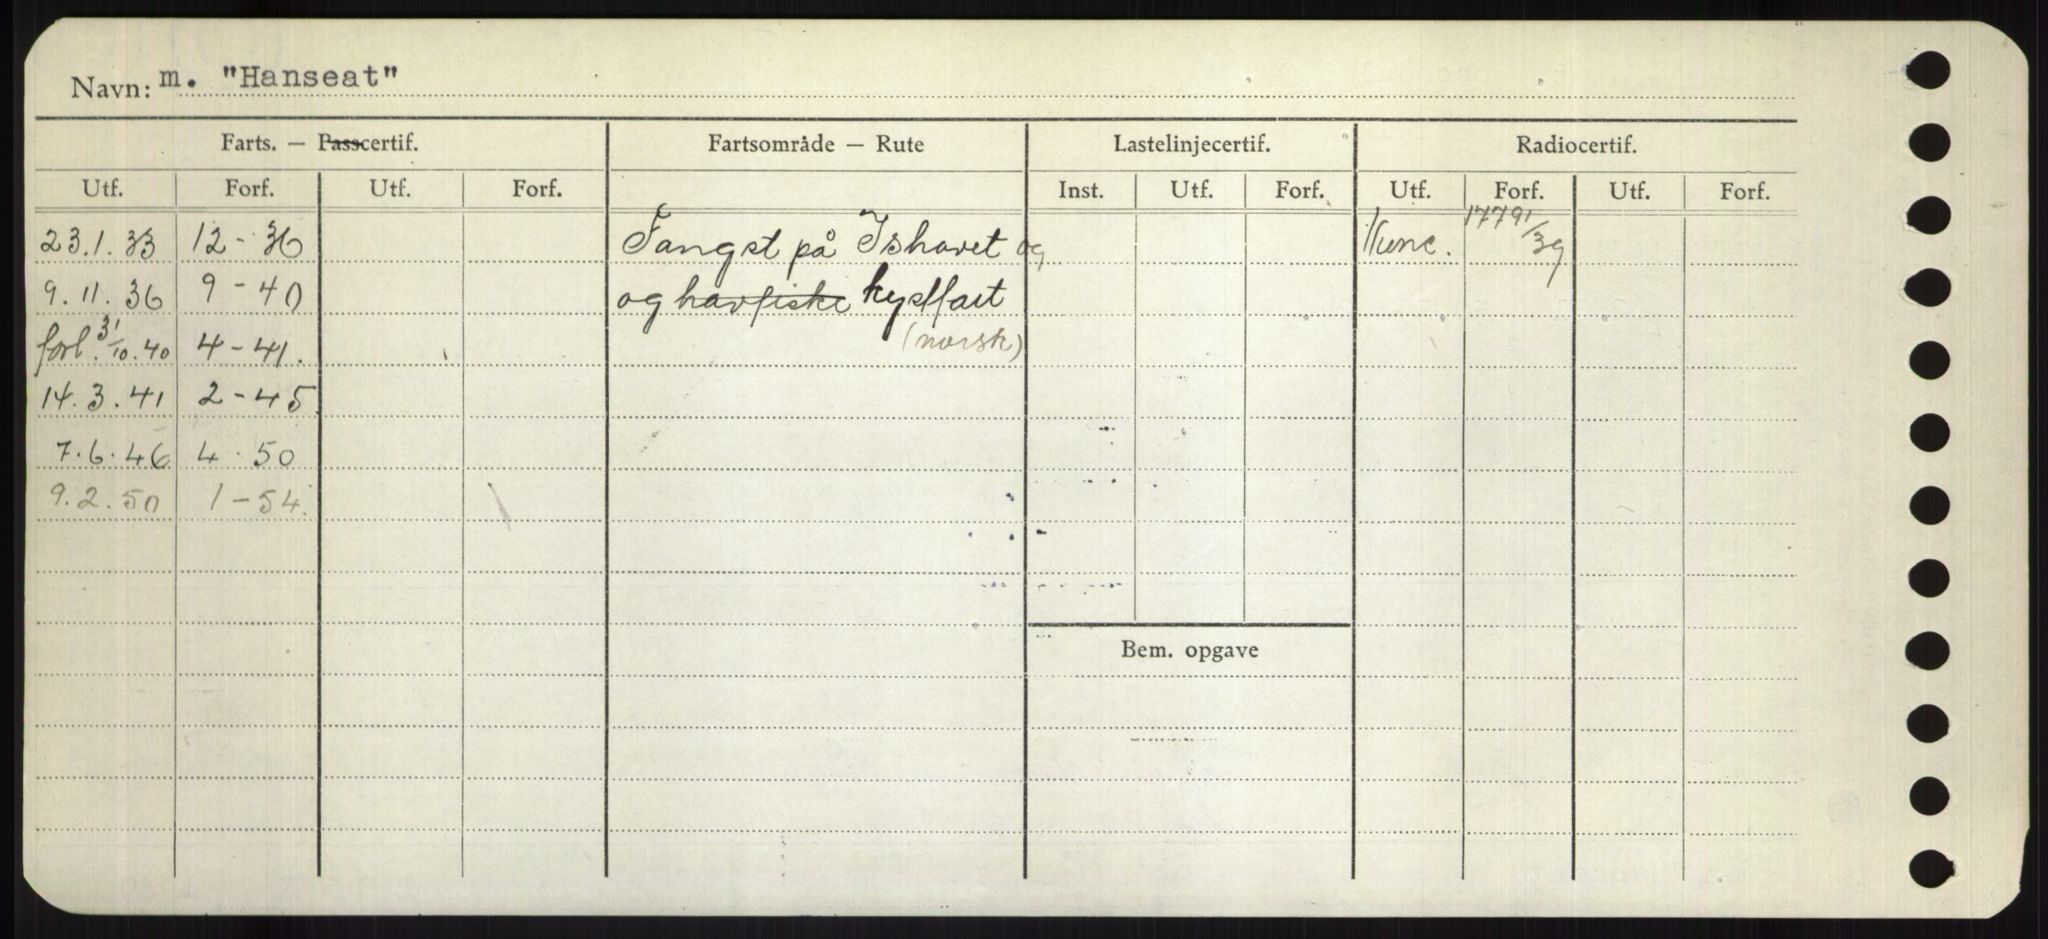 Navn: m. "Hanseat"
Farts. — Passcertif. Fartsområde — Rute Lastelinjecertif. Radiocertif.
Utf. Forf. Utf. Forf. Inst. Utf. Forf. Utf. Forf. Utf. Forf.
23.1.33 12-36 Fangst på Ishavet og 1779 1/39
9.11.36 9-40 og havfiske kystfart
forl. 31/10.40 4-41. (norsk)
14.3.41 2-45
7.6.46 4 50
9.2.50 1-54.
Bem. opgave